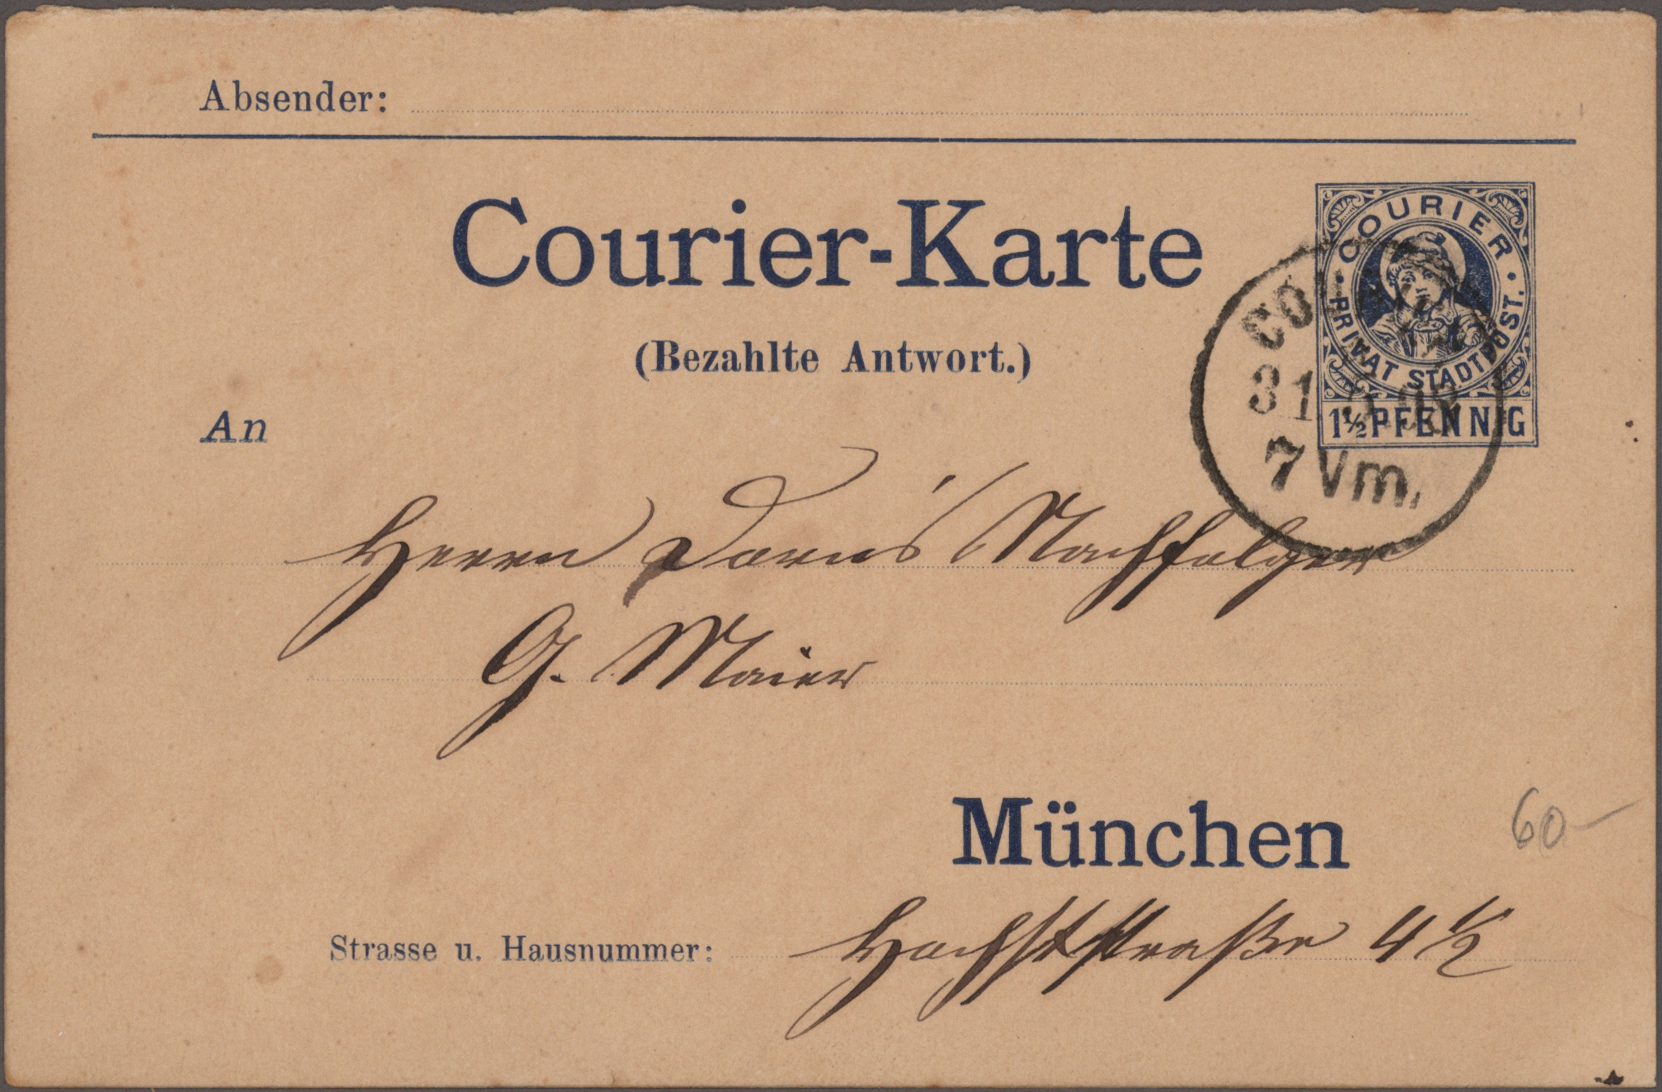 Absender:
Courier-Karte
(Bezahlte Antwort.)
COURIER
PRIVAT STADTPOST.
1½ PFENNIG
31
7 Vm.
An
Herrn Nachfolger
G. Maier
München
60-
Strasse u. Hausnummer: 4½